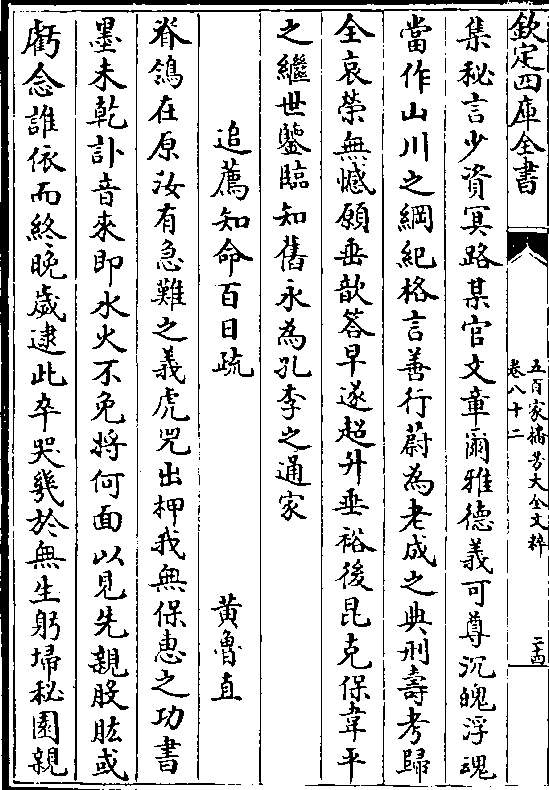 欽定四庫全書
五百家播芳大全文粹
卷八十二
二十四
集秘言少資冥路某官文章爾雅德義可尊沉魄浮魂
當作山川之綱紀格言善行蔚為老成之典刑壽考歸
全哀榮無憾願垂歆答早遂超升垂裕後昆克保韋平
之繼世鑒臨知舊永為孔李之通家
追薦知命百日疏
黃魯直
脊鴒在原汝有急難之義虎兕出柙我無保惠之功書
墨未乾訃音來即水火不免將何面以見先親股肱或
虧念誰依而終晚歲逮此卒哭幾於無生躬埽秘園親